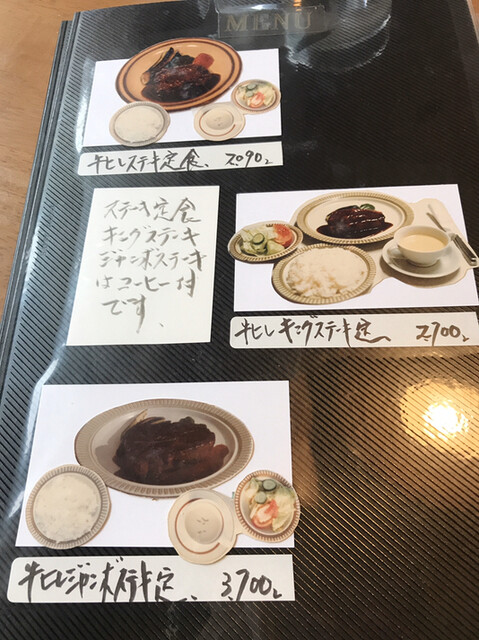 MENU
牛ヒレステーキ定食、 2.090
ステーキ定食
キングステーキ
ジャンボステーキ
はコーヒー付
です。
牛ヒレキングステーキ定、 2.700
牛ヒレジャンボステーキ定、 3.700